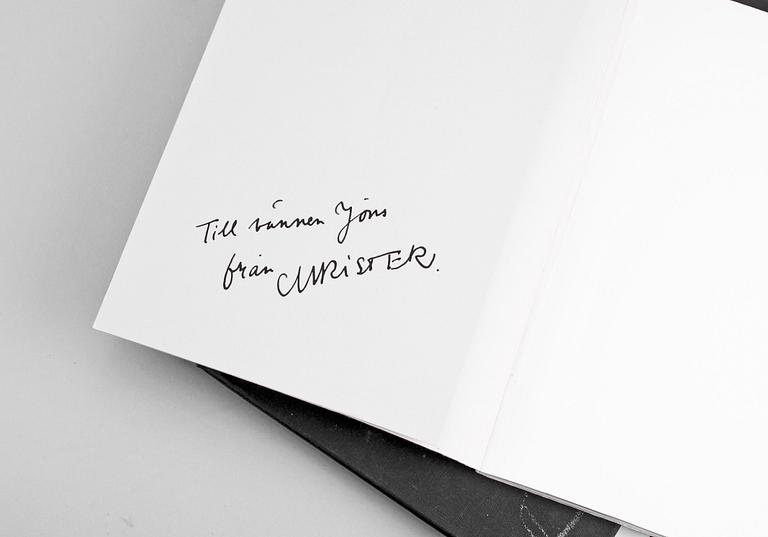 Till vännen Jöns
från CHRISTER.